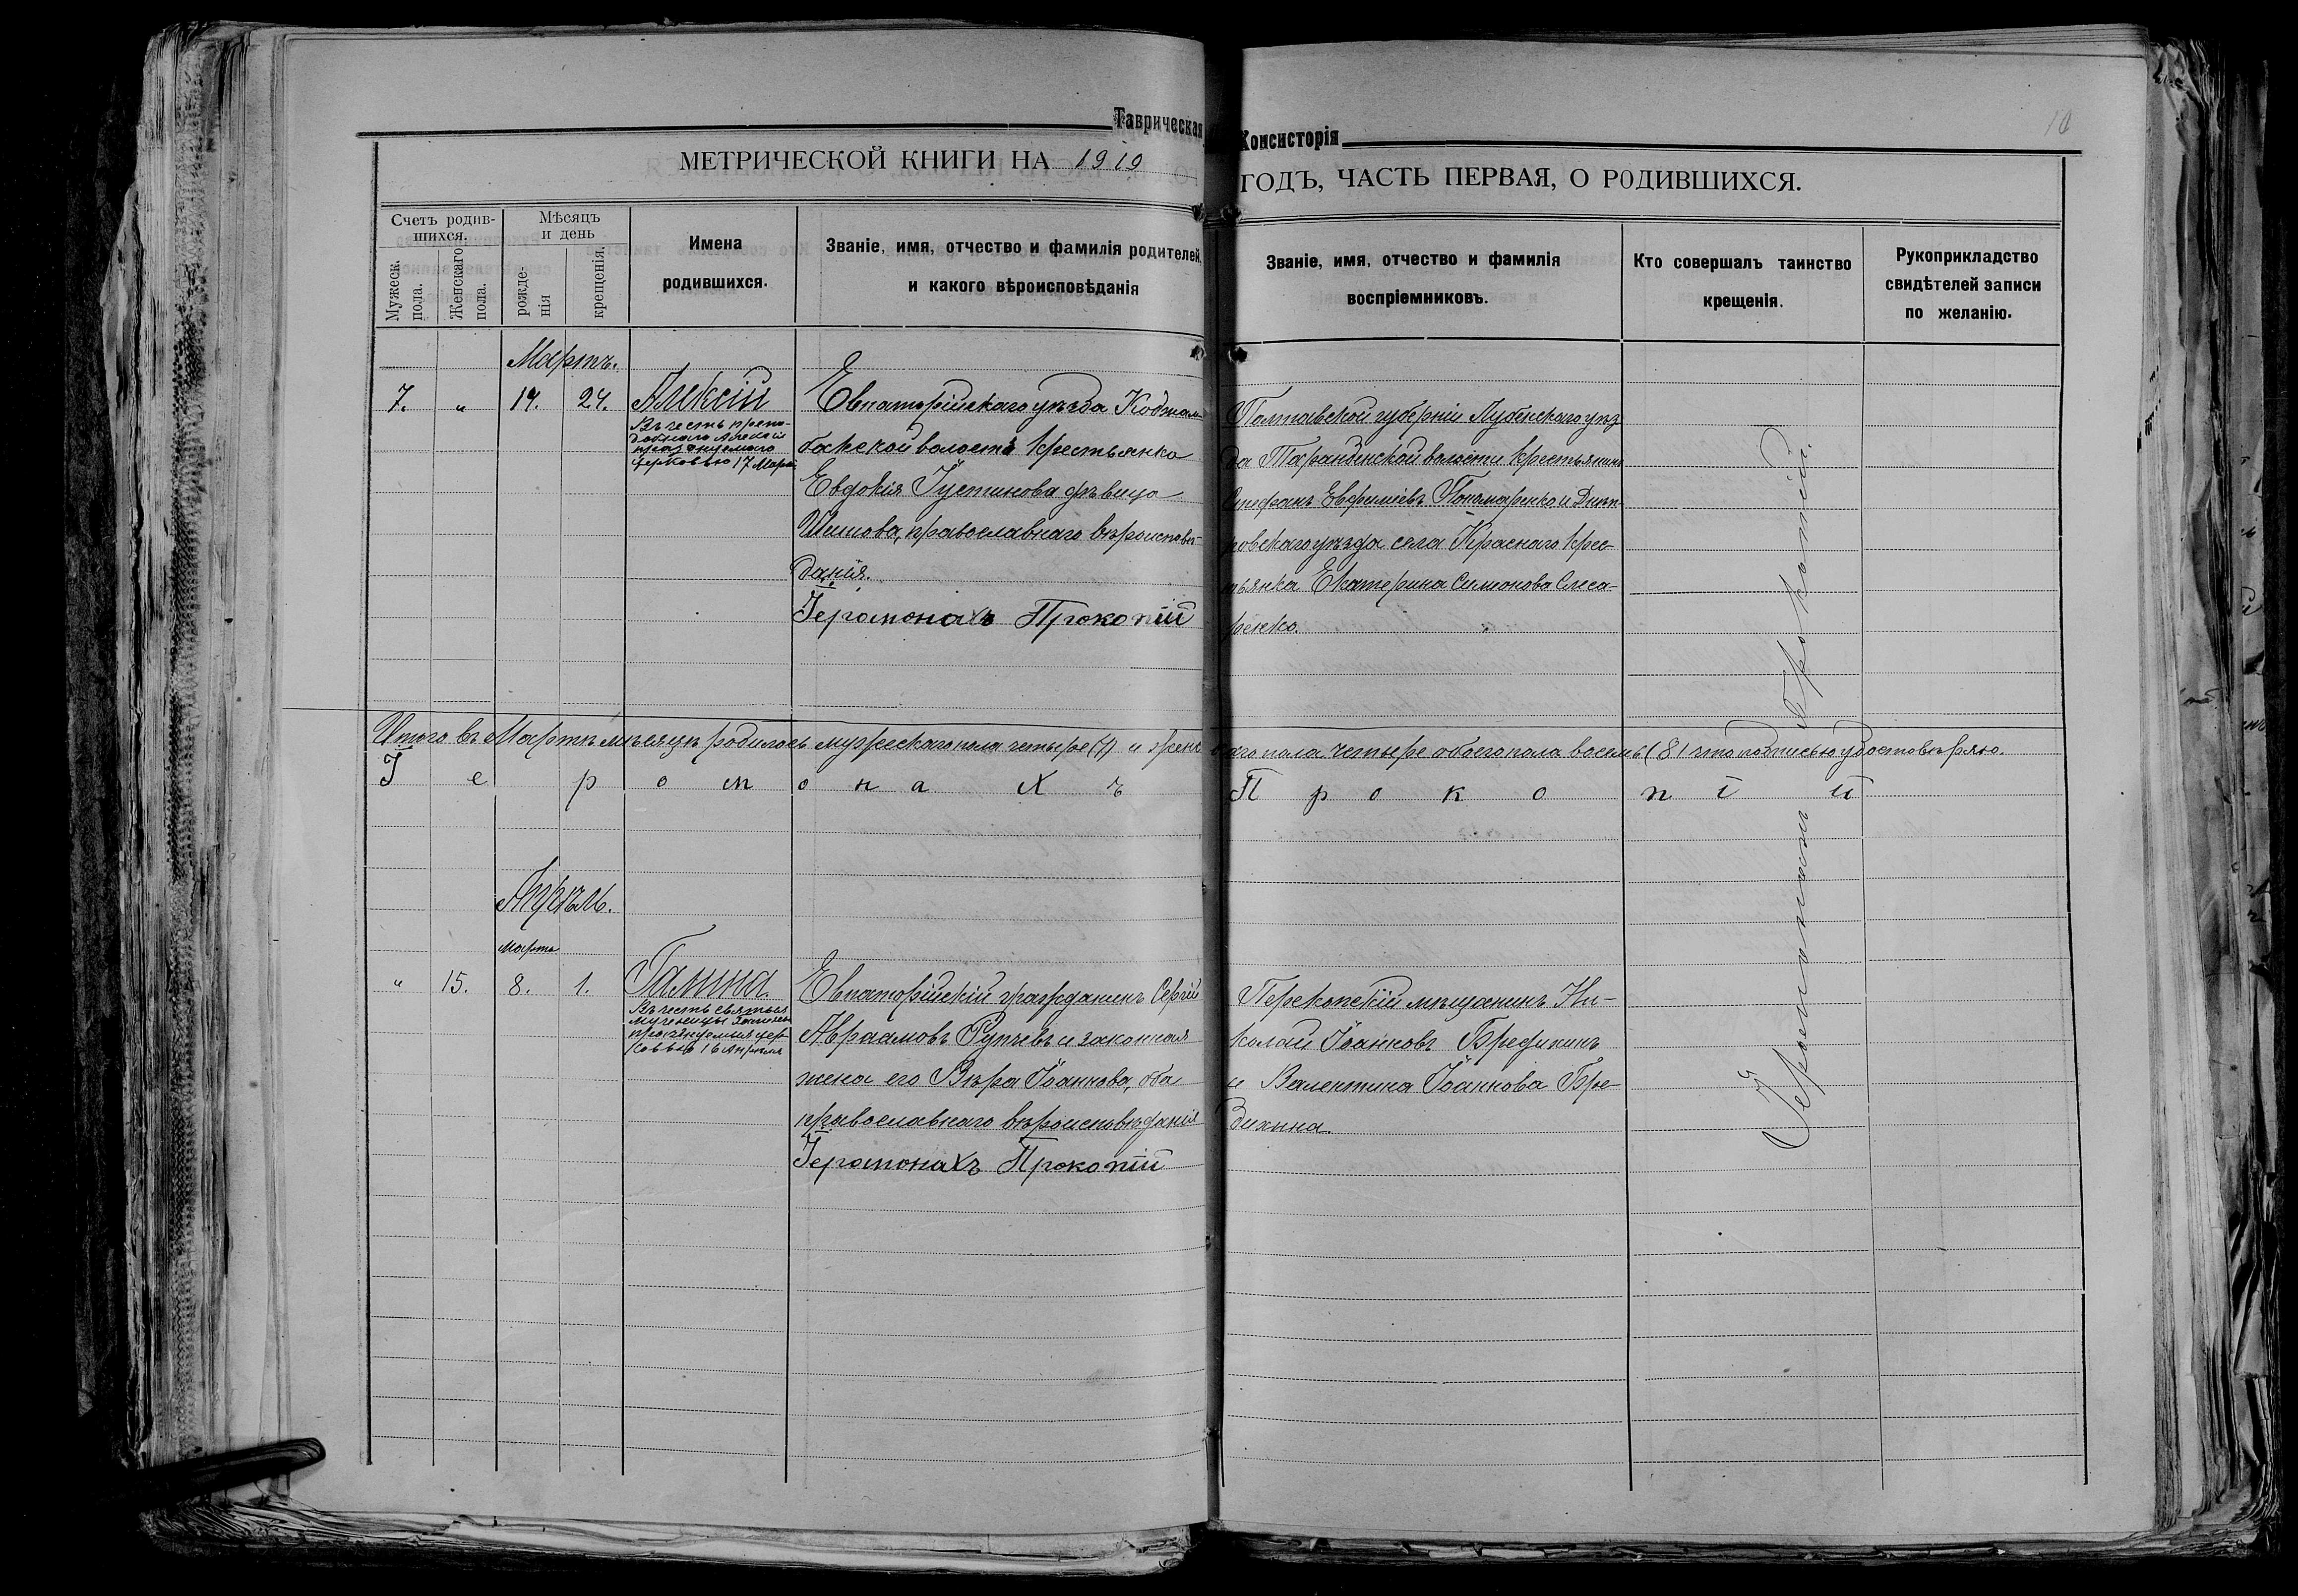 Таврическая Консисторія
10
МЕТРИЧЕСКОЙ КНИГИ НА 1919 ГОДЪ, ЧАСТЬ ПЕРВАЯ, О РОДИВШИХСЯ.
Счетъ родив-
шихся.
Мужеск.
пола.
Женскаго
пола.
Мѣсяцъ
и день
рожде-
нія
крещенія.
Имена
родившихся.
Званіе, имя, отчество и фамилія родителей,
и какого вѣроисповѣданія
Званіе, имя, отчество и фамилія
воспріемниковъ.
Кто совершалъ таинство
крещенія.
Рукоприкладство
свидѣтелей записи
по желанію.
Мартъ.
7. " 24. Алексій
Въ честь препо-
добнаго Алексія
празднуемаго
Церковью 17 Марта
Евпаторійскаго уѣзда Коджам-
бакской волости крестьянка
Евдокія Іустинова дѣвица
Шишова, православнаго вѣроисповѣ-
данія.
Іеромонахъ Прокопій
Полтавской губерніи Лубенскаго уѣз
да Тарандинской волости крестьянинъ
Стефанъ Евфиміевъ Пономаренко и Днѣп-
ровскаго уѣзда села Краснаго крес-
тьянка Екатерина Симонова Слеса-
ренко.
Итого въ Мартѣ мѣсяцѣ родилось мужескаго пола четыре (4) и женскаго пола четыре обоего пола восемь (8) что подписью удостовѣряю.
Іеромонахъ Прокопій
Апрѣль.
Мартъ
" 15. 8. 1. Галина
Въ честь святыя
Мученицы Галины
празднуемыя цер-
ковью 16 Апрѣля
Евпаторійскій гражданинъ Сергій
Авраамовъ и законная
жена его Вѣра Іоаннова, оба
православнаго вѣроисповѣданія
Іеромонахъ Прокопій
Перекопскій мѣщанинъ Ни-
колай Іоанновъ Бредихинъ
и Валентина Іоаннова Бре-
дихина.
Іеромонахъ Прокопій.